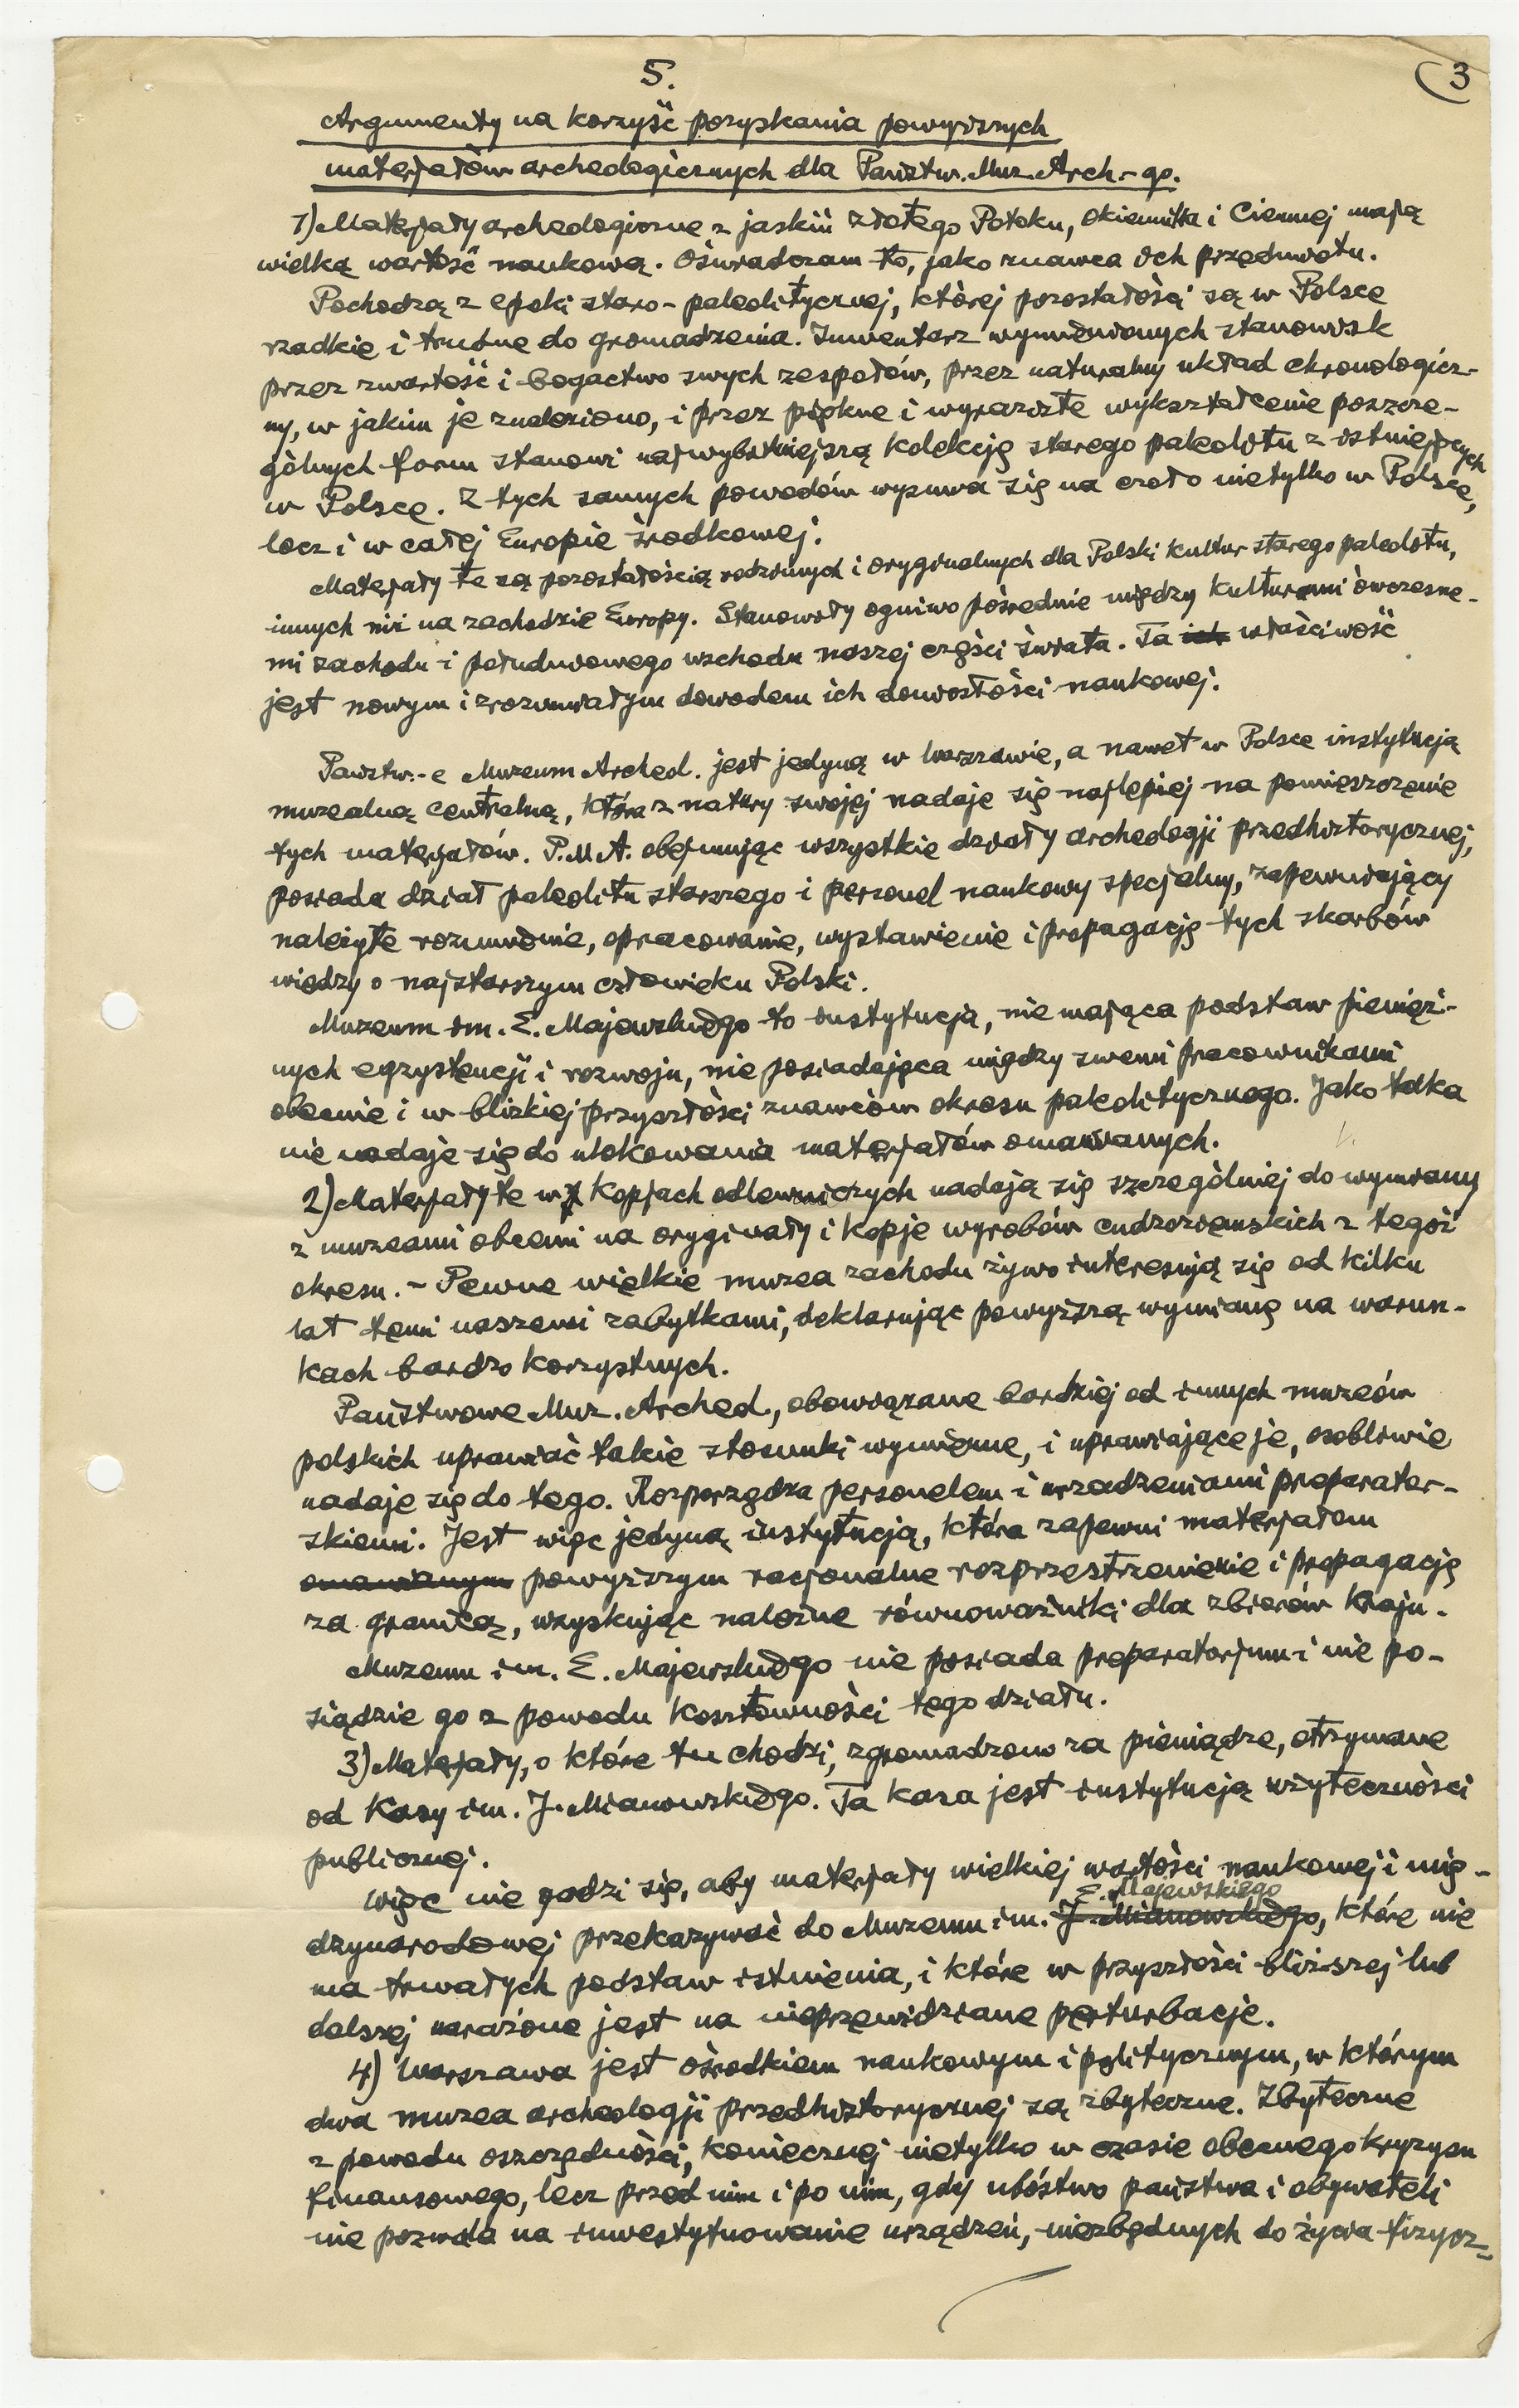 5.
3
Argumenty na korzyść pozyskania powyższych
materjałów archeologicznych dla Państw. Muz. Arch.-go.
1) Materjały archeologiczne z jaskiń Złotego Potoku, Okiennika i Ciemnej mają
wielką wartość naukową. Oświadczam to, jako znawca ich przedmiotu.
Pochodzą z epoki staro-paleolitycznej, której pozostałości są w Polsce
rzadkie i trudne do gromadzenia. Inwentarz wymienionych stanowisk
przez zwartość i bogactwo swych zespołów, przez naturalny układ chronologicz-
ny, w jakim je znaleziono, i przez piękne i wyraziste wykształcenie poszcze-
gólnych form stanowi najwybitniejszą kolekcję starego paleolitu z istniejących
w Polsce. Z tych samych powodów wysuwa się na czoło nietylko w Polsce,
lecz i w całej Europie środkowej.
Materjały te są pozostałością rodzimych i oryginalnych dla Polski kultur starego paleolitu,
innych niż na zachodzie Europy. Stanowiły ogniwo pośrednie między kulturami ówczesne-
mi zachodu i południowego wschodu naszej części świata. Ta ich właściwość
jest nowym i zrozumiałym dowodem ich doniosłości naukowej.
Państw.-e Muzeum Archeol. jest jedyną w Warszawie, a nawet w Polsce instytucją
muzealną centralną, która z natury swojej nadaje się najlepiej na pomieszczenie
tych materjałów. P.M.A. obejmując wszystkie działy archeologji przedhistorycznej,
posiada dział paleolitu starszego i personel naukowy specjalny, zapewniający
należyte rozumienie, opracowanie, wystawienie i propagację tych skarbów
wiedzy o najstarszym człowieku Polski.
Muzeum im. E. Majewskiego to instytucja, nie mająca podstaw pienięż-
nych egzystencji i rozwoju, nie posiadająca między swemi pracownikami
obecnie i w bliskiej przyszłości znawców okresu paleolitycznego. Jako taka
nie nadaje się do ulokowania materjałów omawianych.
2) Materjały te w kopjach odlewniczych nadają się szczególniej do wymiany
z muzeami obcemi na oryginały i kopje wyrobów cudzoziemskich z tegoż
okresu. – Pewne wielkie muzea zachodu żywo interesują się od kilku
lat temi naszemi zabytkami, deklarując powyższą wymianę na warun-
kach bardzo korzystnych.
Państwowe Muz. Archeol., obowiązane bardziej od innych muzeów
polskich uprawiać takie stosunki wymienne, i uprawiające je, osobliwie
nadaje się do tego. Rozporządza personelem i urządzeniami preparator-
skiemi. Jest więc jedyną instytucją, która zapewni materjałom
omawianym powyższym racjonalne rozprzestrzenienie i propagację
za granicą, uzyskując należne równoważniki dla zbiorów Kraju.
Muzeum im. E. Majewskiego nie posiada preparatorjum i nie po-
siądzie go z powodu kosztowności tego działu.
3) Materjały, o które tu chodzi, zgromadzono za pieniądze, otrzymane
od Kasy im. J. Mianowskiego. Ta kasa jest instytucją użyteczności
publicznej.
Więc nie godzi się, aby materjały wielkiej wartości naukowej i mię-
E. Majewskiego
dzynarodowej przekazywać do Muzeum im. J. Mianowskiego, które nie
ma trwałych podstaw istnienia, i które w przyszłości bliższej lub
dalszej narażone jest na nieprzewidziane perturbacje.
4) Warszawa jest ośrodkiem naukowym i politycznym, w którym
dwa muzea archeologji przedhistorycznej są zbyteczne. Zbyteczne
z powodu oszczędności, koniecznej nietylko w czasie obecnego kryzysu
finansowego, lecz przed nim i po nim, gdy ubóstwo państwa i obywateli
nie pozwala na inwestytuowanie urządzeń, niezbędnych do życia fizycz-